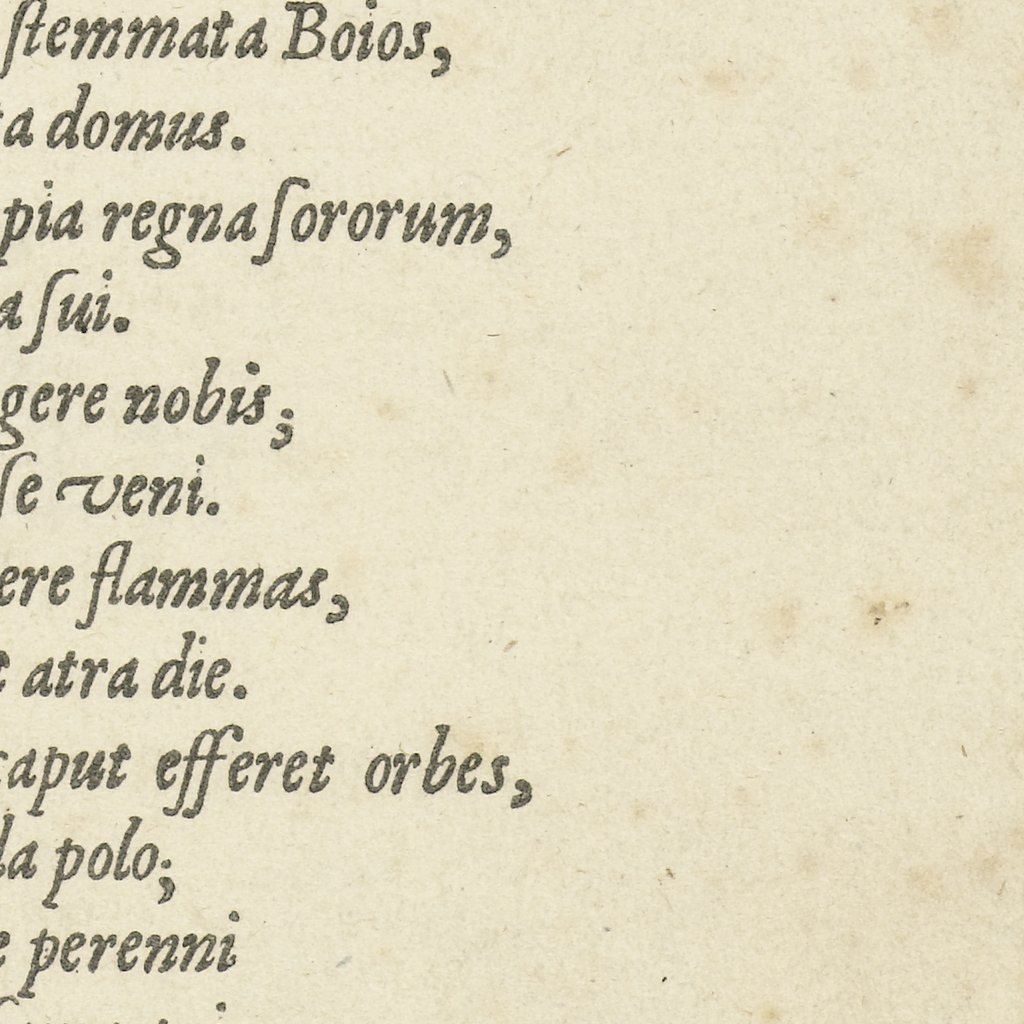 ſtemmata Boios,
ta domus.
pia regna ſororum,
a ſui.
gere nobis;
ſe veni.
ere flammas,
t atra die.
caput efferet orbes,
la polo;
e perenni